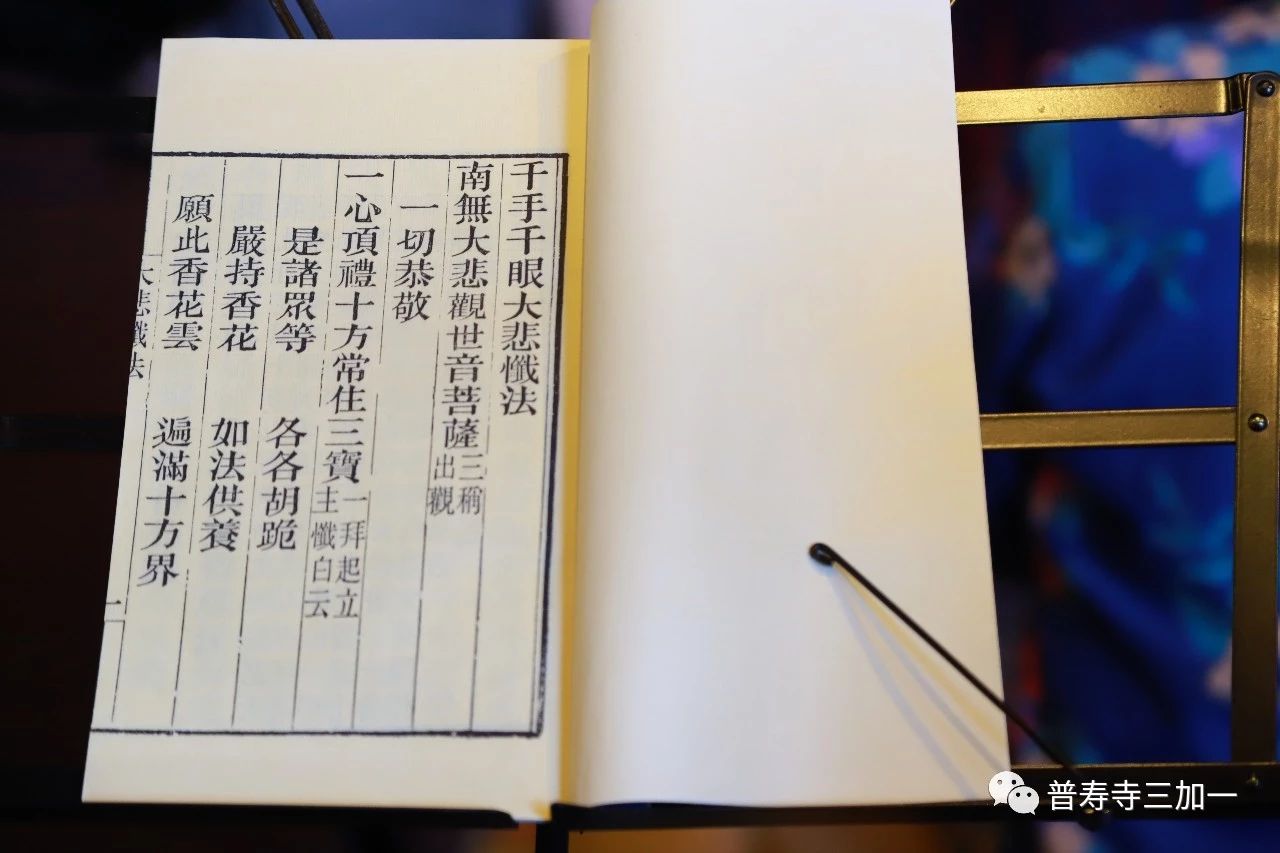 千手千眼大悲懺法
南無大悲觀世音菩薩三稱出觀
一切恭敬
一心頂禮十方常住三寶一拜起立主懺白云
是諸眾等 各各胡跪
嚴持香花 如法供養
願此香花雲 遍滿十方界
大悲懺法 一
普寿寺三加一